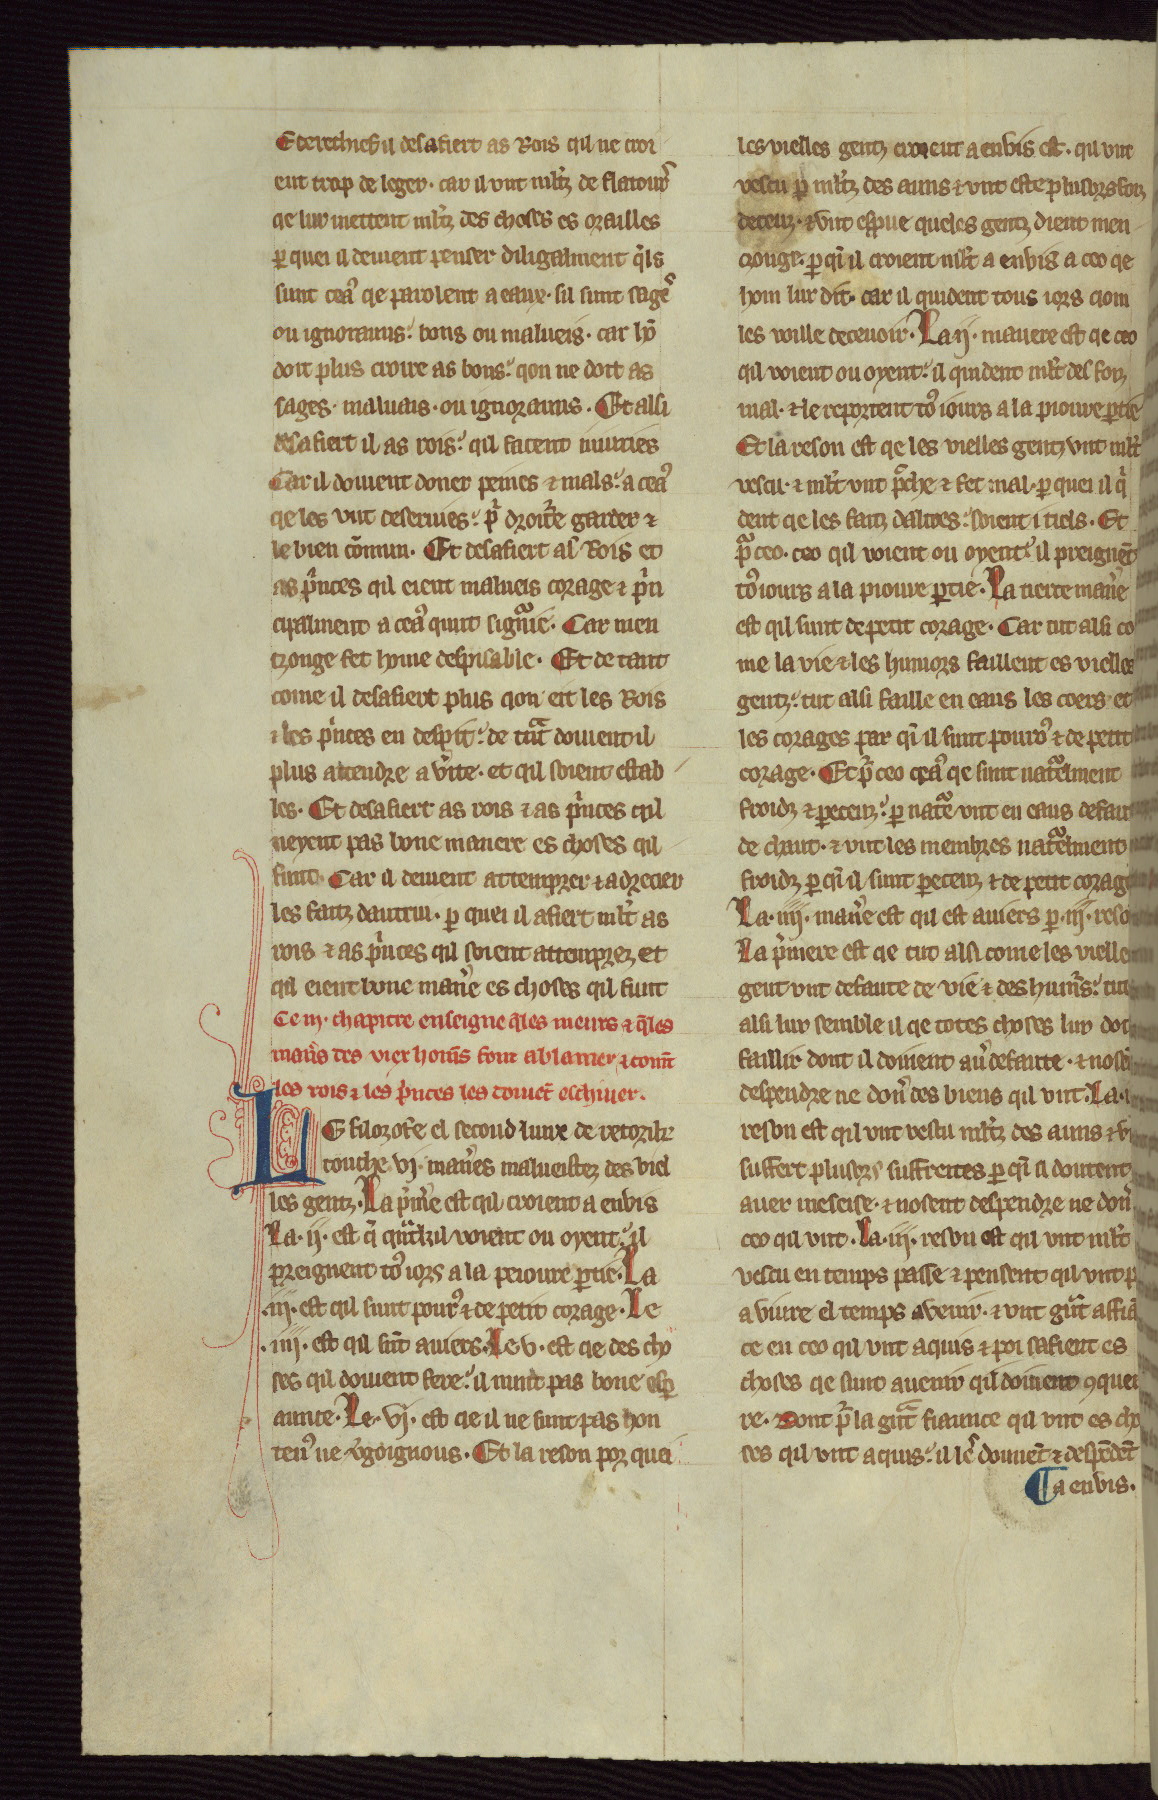 Et derechief il desafiert as Rois qil ne croi
ent trop de leger. car il vnt mltz de flatours
qe lur mettent mltz des choses es orailles
p quei il deiuent penser diligalment qls
sunt ceaus qe parolent a eaux. sil sunt sages
ou ignoranns. bons ou malueis. car hom
doit plus croire as bons. qon ne doit as
sages. maluais. ou ignoranns. Et alsi
desafiert il as rois. qil facent iniuries
Car il doiuent doner peines & mals. a ceaus
qe les vnt deseruies. pur droiture garder &
le bien comun. Et desafiert as Rois et
as princes qil eient malueis corage & prin
cipalment a ceaus qunt signurie. Car men
zonge fet home despisable. Et de tant
come il desafiert plus qon eit les Rois
& les princes en despit. de tant doiuent il
plus attendre a verite. et qil soient estab
les. Et desafiert as rois & as princes qil
neyent pas bone manere es choses qil
funt. Car il deiuent attemprer & adrecier
les faitz dautrui. p quei il afiert mlt as
rois & as princes qil soient attemprez et
qil eient bone manere es choses qil funt
Ce iij. chapitre enseigne qles meurs & qles
maners des vielz homs font a blamer & coment
les rois & les princes les doiuent eschiuer.
LE filozofre el second liure de retorike
touche vj. maneres malueistez des viel
les gentz. La pmere est qil croient a enuis
La. ij. est q quanqil voient ou oyent. il
preignent toutiors a la peioure partie. La
.iij. est qil sunt pourous & de petit corage. Le
.iiij. est qil sunt auiers. Le. v. est qe des cho
ses qil doiuent fere. il nunt pas bone esper
aunce. Le. vj. est qe il ne sunt pas hon
teus ne vergoignous. Et la reson por quei
les vielles gentz croient a enuis est. qil vnt
vescu p mltz des anns & vnt este plusors foiz
deceuz. & vnt espue queles gentz dient men
zonge. p qi il croient mlt a enuis a ceo qe
hom lur dit. car il quident tous iors qom
les voille deceuoir. La ij. manere est qe ceo
qil voient ou oyent. il quident mlt des foiz
mal. & le reportent touiours a la pioure partie
Et la reson est qe les vielles gentz vnt mlt
vescu. & mlt vnt peche & fet mal. p quei il qui
dent qe les faitz daltres. soient itiels. Et
pur ceo. ceo qil voient ou oyent. il preignent
touiours a la pioure partie. La tierce manere
est qil sunt de petit corage. Car tut alsi co
me la vie & les humors faillent es vielles
gentz. tut alsi faille en eaus les coers et
les corages par qi il sunt pourous & de petit
corage. Et pur ceo ceaus qe sunt naturelment
froidz & pereceuz. p nature vnt en eaus defaut
de chaut. & vnt les membres naturelment
froidz p qi il sunt pereceuz & de petit corage
La. iiij. manere est qil est auiers p. iij. reso
La pmiere est qe tut alsi come les vielle
gent vnt defaute de vie & des humors. tut
alsi lur semble il qe totes choses lur doi
faillir dont il doiuent auer defaute. & nosent
despendre ne doner des biens qil vnt. La. ij
reson est qil vnt vescu mltz des anns & vn
suffert plusors suffreites p qi il doutent
auer meseise. & nosent despendre ne doner
ceo qil vnt. La. iij. reson est qil vnt mlt
vescu en temps passe & pensent qil vnt p
a viure el temps avenir. & vnt grant affia
ce en ceo qil vnt aquis & poi safient es
choses qe sunt auenir qil doiuent conquer
re. Dont pur la grant fiaunce qil vnt es cho
ses qil vnt aquis. il les donnent & despendent
a enuis.